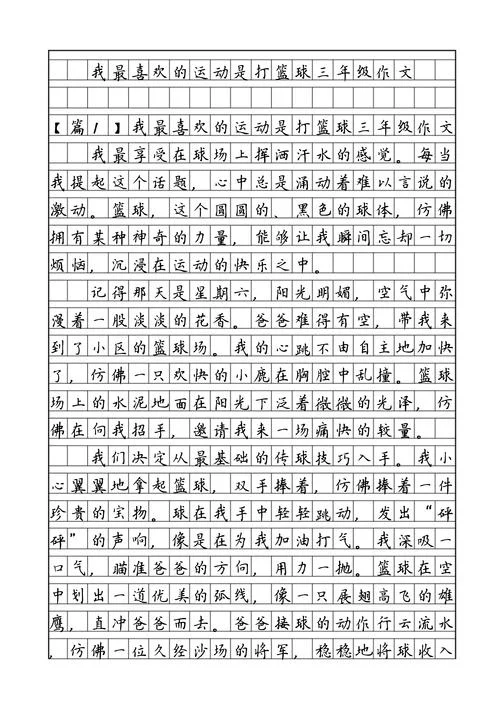 我最喜欢的运动是打篮球三年级作文
【篇1】我最喜欢的运动是打篮球三年级作文
我最享受在球场上挥洒汗水的感觉。每当
我提起这个话题，心中总是涌动着难以言说的
激动。篮球，这个圆圆的、黑色的球体，仿佛
拥有某种神奇的力量，能够让我瞬间忘却一切
烦恼，沉浸在运动的快乐之中。
记得那天是星期六，阳光明媚，空气中弥
漫着一股淡淡的花香。爸爸难得有空，带我来
到了小区的篮球场。我的心跳不由自主地加快
了，仿佛一只欢快的小鹿在胸腔中乱撞。篮球
场上的水泥地面在阳光下泛着微微的光泽，仿
佛在向我招手，邀请我来一场痛快的较量。
我们决定从最基础的传球技巧入手。我小
心翼翼地拿起篮球，双手捧着，仿佛捧着一件
珍贵的宝物。球在我手中轻轻跳动，发出“砰
砰”的声响，像是在为我加油打气。我深吸一
口气，瞄准爸爸的方向，用力一抛。篮球在空
中划出一道优美的弧线，像一只展翅高飞的雄
鹰，直冲爸爸而去。爸爸接球的动作行云流水
，仿佛一位久经沙场的将军，稳稳地将球收入